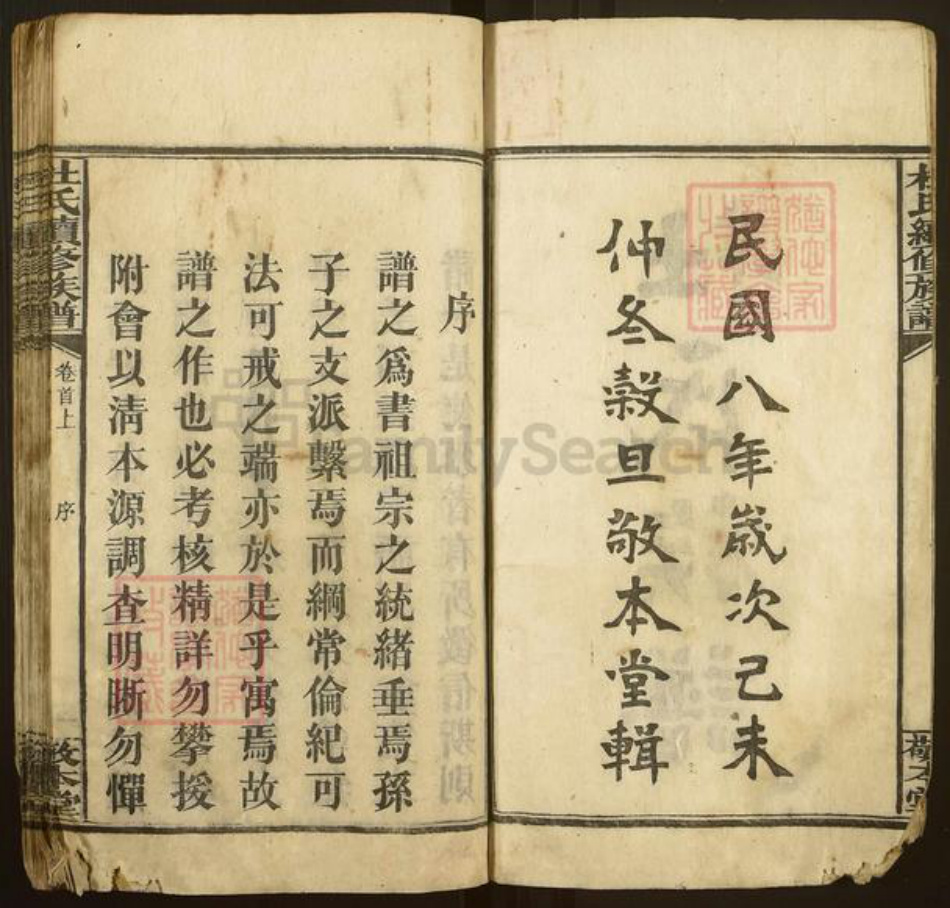 杜氏續修族譜
敬本堂
民國八年歲次己未
仲冬榖旦敬本堂輯
序
譜之爲書祖宗之統緒垂焉孫
子之支派繫焉而綱常倫紀可
法可戒之端亦於是乎寓焉故
譜之作也必考核精詳勿攀援
附會以淸本源調查明晰勿憚
杜氏續修族譜
卷首上
序
敬本堂
FamilySearch